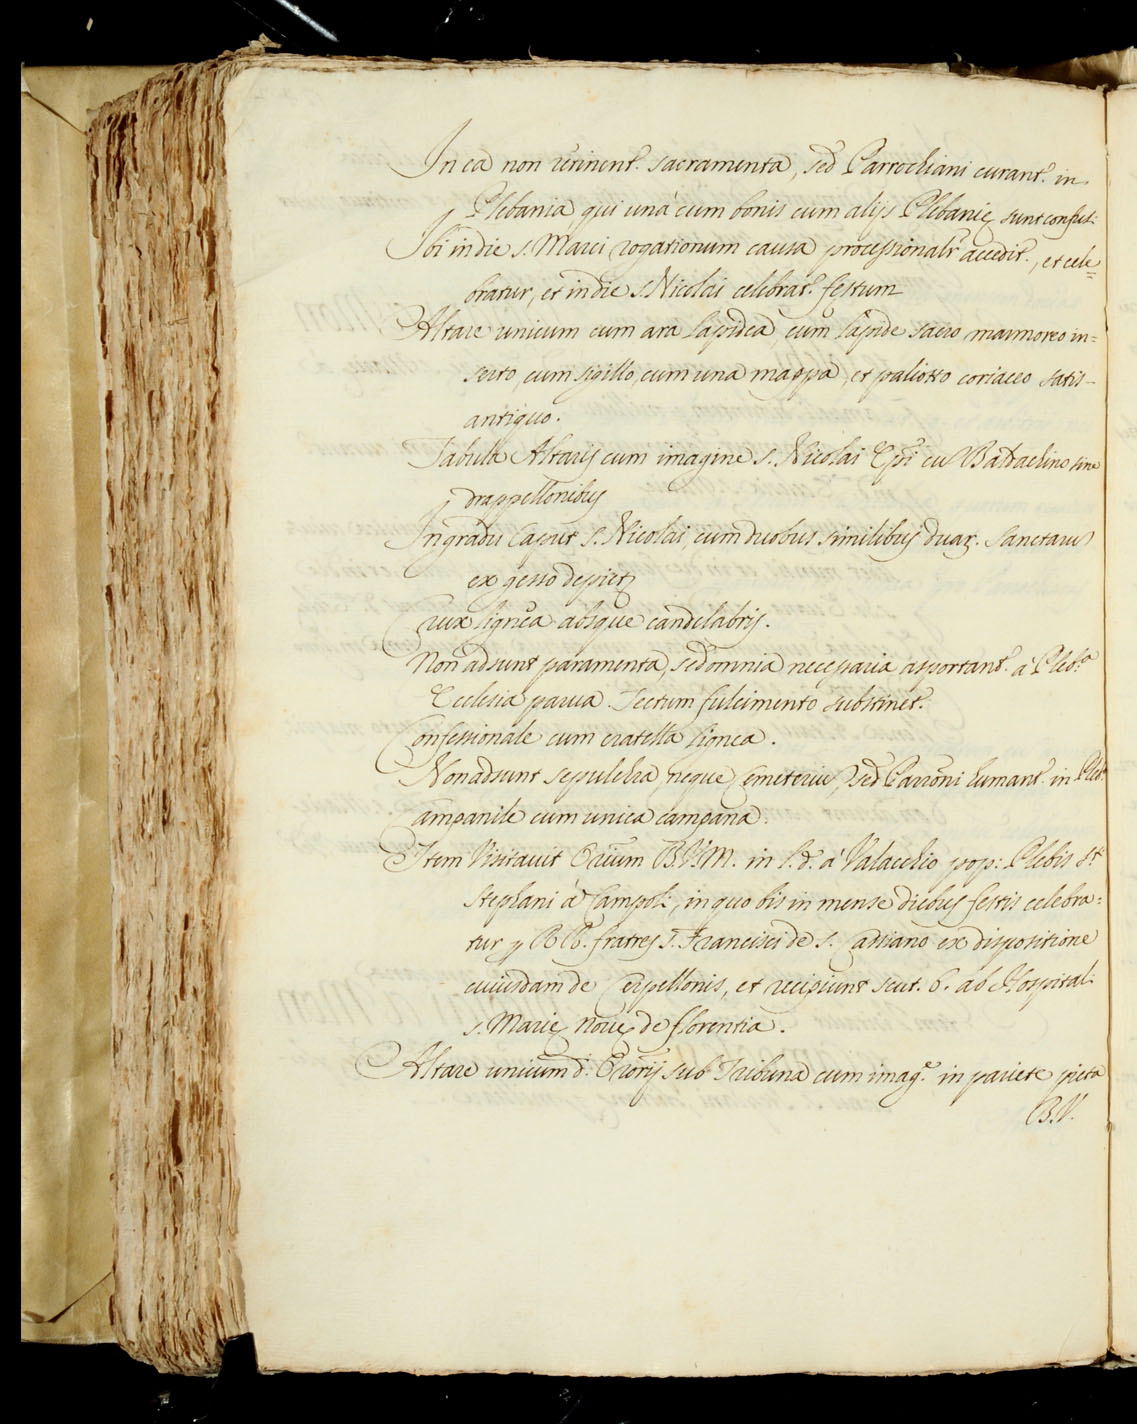 In ea non retinent.r sacramenta, sed Parrochiani curant.r in
Plebania qui unà cum bonis cum alijs Plebanie sunt confus:
Ibi in die s. Marci rogationum causa processionalr accedit.r, et cele=
bratur, et in die s. Nicolai celebrat.r festum
Altare unicum cum ara lapidea, cum lapide sacro marmoreo in=
serto, cum sigillo, cum una mappa, et paliotto coriaceo satis
antiquo.
Tabula Altaris cum imagine s. Nicolai Epi cu Baldachino sine
drappellonibus
In gradu Caput s. Nicolai, cum duobus similibus duar. Sanctaru
ex gesso depict
Crux lignea absque candelabris.
Non adsunt paramenta, sed omnia necessaria asportant.r à Pleb.a
Ecclesia parua. Tectum fulcimento substinet.r
Confessionale cum cratella lignea.
Non adsunt sepulchra neque Cemeteriu, sed Parroni humant.r in Pleb.
Campanile cum unica campana.
Item Visitauit Orium B.V.M. in l.d. à Valacchio pop: Plebis s.ti
Stephani à Campoli, in quo bis in mense diebus festis celebra=
tur p RR. fratres S. Francisci de S. Cassiano ex dispositione
cuiusdam de Cerpellonis, et recipiunt scut. 6. ab Hospital:
s. Marie Noue de florentia.
Altare unicum d. Ororij sub Tribuna cum imag.e in pariete picta
B.V.